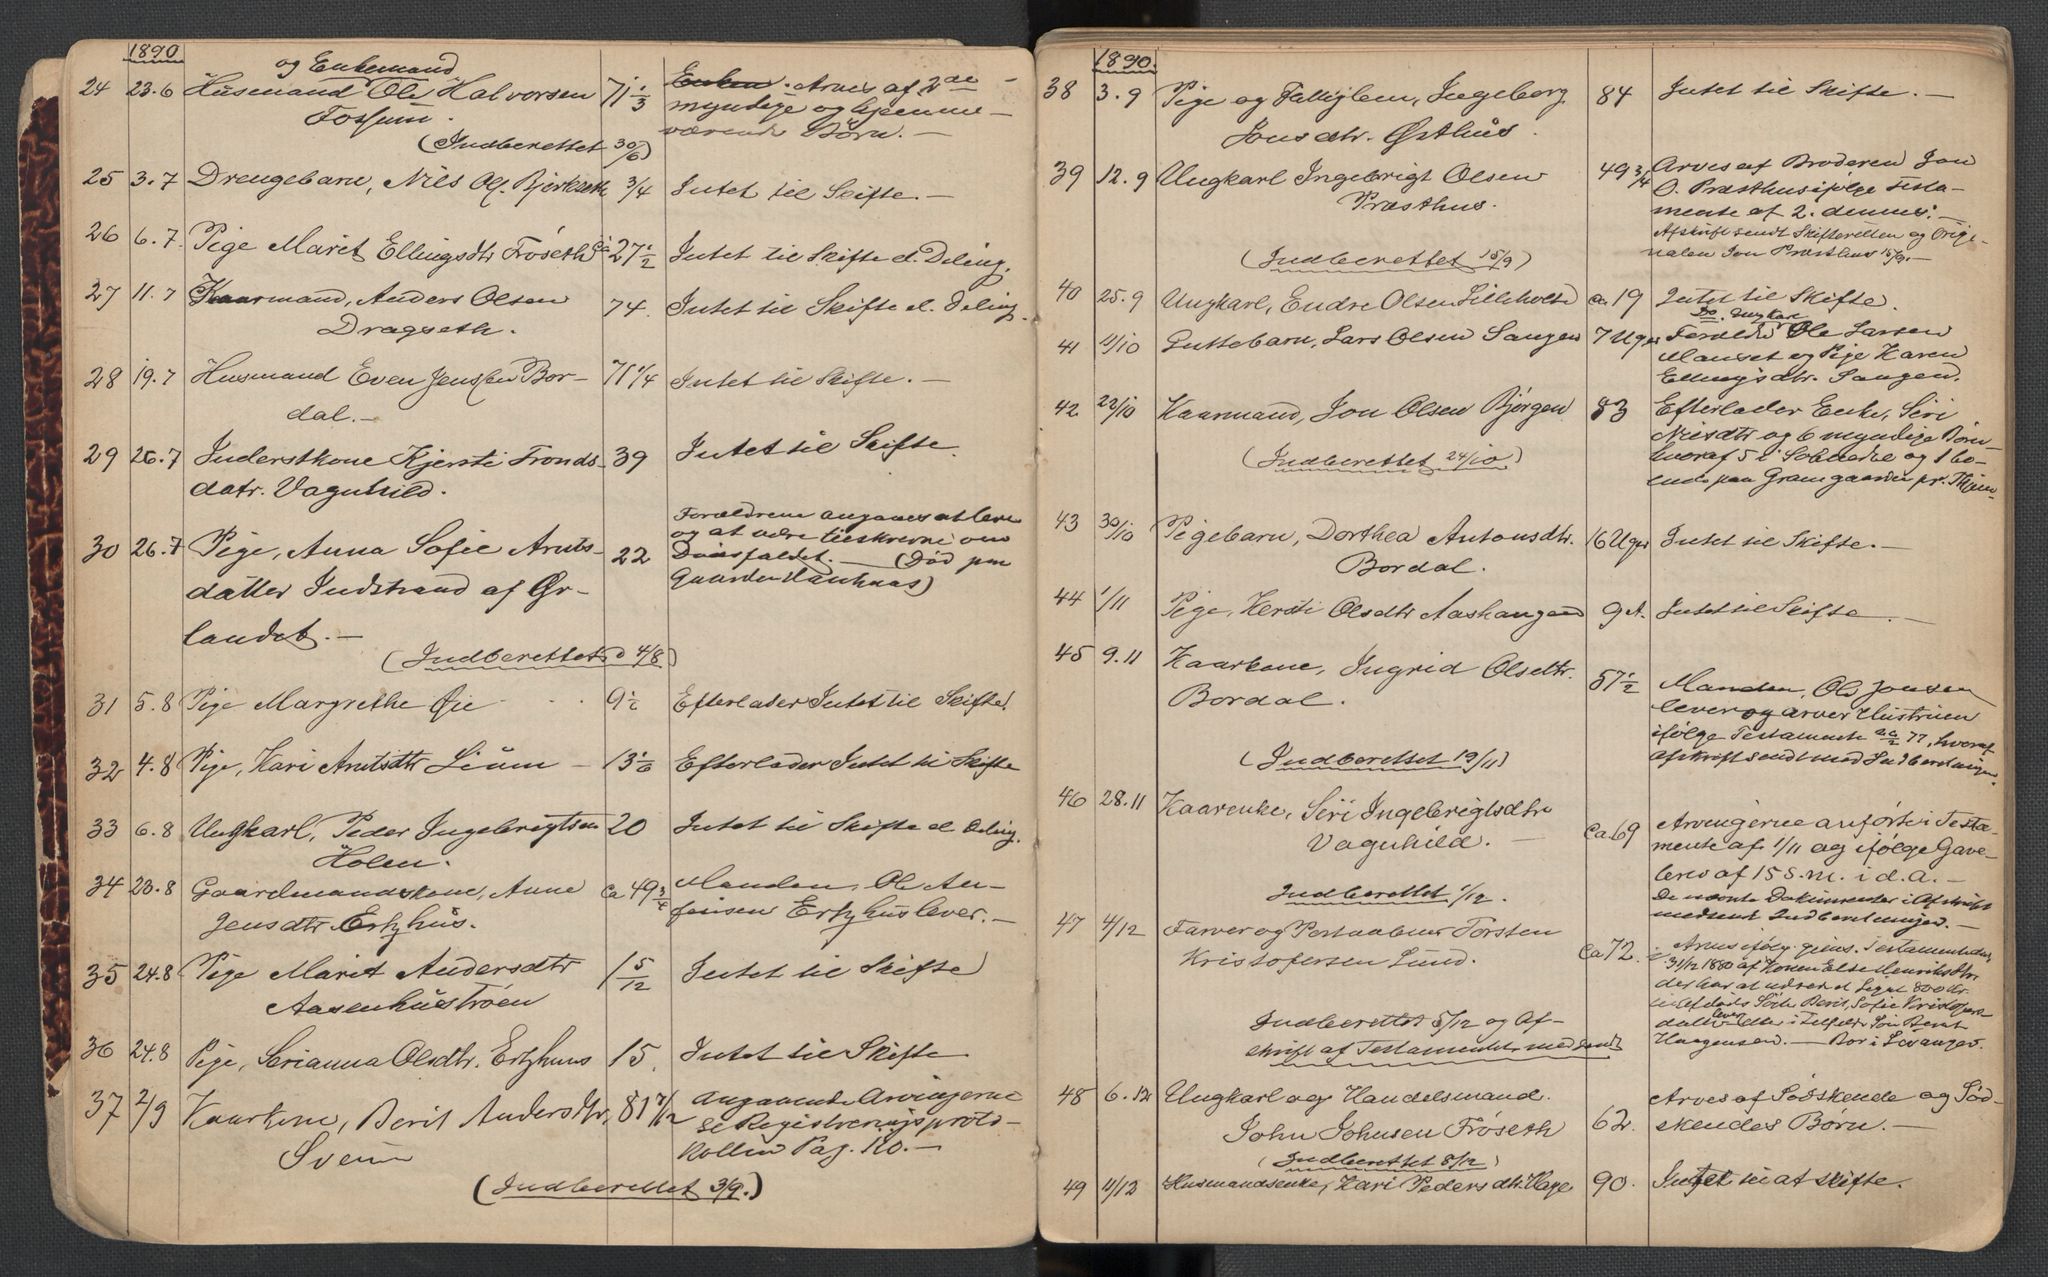 1890
og Enkemand
24 23.6 Husmand Ole Halvorsen 71 1/3 Enken. Arves af 2de
Fossum. myndige og hjemme-
værende Børn.—
(Indberettet 30/6)
25 3.7 Drengebarn, Nils Ol. Bjerkseth 3/4 Intet til Skifte.—
26 6.7. Pige Marit Ellingsdtr Frøseth ca 27 1/2 Intet til Skifte el. Deling.
27 11.7 Kaarmand, Anders Olsen 74. Intet til Skifte el. Deling.
Dragseth.
28 19.7 Husmand Even Jenssen Bor- 71 1/4 Intet til Skifte.—
dal.—
29 26.7 Inderstkone Kjersti Tronds- 39 Intet til Skifte.
datr. Vagnhild.
30 26.7 Pige, Anna Sofie Arnts- 22 Forældrene angaves at leve
datter Indstrand af Ør- og at være tilskrevne om
landet.— Dødsfaldet.— (Død paa
Gaarden Hauhaas)
(Indberettet 4/8)
31 5.8 Pige Margrethe Øie 9 1/2 Efterlader Intet til Skifte.
32 4.8 Pige, Kari Arntsdtr Lium — 13 1/6 Efterlader Intet til Skifte
33 6.8 Ungkarl, Peder Ingebrigtsen 20 Intet til Skifte el Deling.
Holen.
34 23.8 Gaardmandskone, Anne ca 49 3/4 Manden, Ole An-
Jensdtr Ertzhus. fensen Ertzhus lever.—
35 24.8 Pige Marit Andersdtr 1 5/12 Intet til Skifte
Aasenhustrøen
36 24.8 Pige, Serianna Olsdtr. Ertzhuus 15. Intet til Skifte
37 2/9 Kaarkone, Berit Andersdtr, 81 7/12 Angaaende Arvingerne
Sveum se Registreringsproto-
kollen Pag. 110.—
(Indberettet 3/9.)
1890.
38 3.9 Pige og Fattiglem, Ingeborg 84 Intet til Skifte.—
Jonsdtr. Østhus.
39 12.9 Ungkarl Ingebrigt Olsen 49 3/4 Arves af Broderen Jon
Præsthus. O. Præsthus ifølge Testa-
mente af 2. dennes.—
Afskrift sendt Skifteretten og Origi-
nalen Jon Præsthus 15/9.—
(Indberettet 15/9)
40 25.9 Ungkarl, Endre Olsen Lilleholte ca 19 Intet til Skifte.
41 4/10 Guttebarn, Lars Olsen Sangen 7 Uger Do. Ungkarl
Forældre Ole Larsen
Manset og Pige Karen
Ellingsdtr. Sangen.
42 22/10 Kaarmand, Jon Olsen Bjørgen 83 Efterlader Enke, Siri
Nilsdtr og 6 myndige Børn
hvoraf 5 i Soknedal og 1 bo-
ende paa Gramgaarden pr. Thjem
(Indberettet 24/10)
43 30/10 Pigebarn, Dorthea Antonsdtr. 16 Uger Intet til Skifte.—
Bordal.
44 1/11 Pige, Kersti Olsdtr Aashaugen 9 A. Intet til Skifte.—
45 9.11 Kaarkone, Ingrid Olsdtr. 57 1/2 Manden, Ole Jonsen
Bordal. lever og arver Hustruen
ifølge Testamente 22/2 77, hvoraf
Afskrift sendt med Indberetningen.
(Indberettet 19/11)
46 28.11 Kaarenke, Seri Ingebrigtsdtr ca 69 Arvingerne anførte i Testa-
Vagnhild.— mente af 1/11 og ifølge Gave-
brev af 15 s.m. i d.A.—
De nævnte Dokumenter i Afskrift
medsendt Indberetningen.—
Indberettet 1/12.
47 4/12 Farver og Postaabner Torsten ca 72. Arves ifølg. giens. Testamente
Kristofersen Lund. 31/12 1880 af Konen Else Henriksdtr
der har at udrede et Legat 800 Kr.
til Afdødes Søster Berit, Sofie Kristofers
datter lever i Tilfælde Søn Bernt
Haagensen.— Bor i Levanger.
Indberettet 5/12 og Af-
skrift af Testamentet medsendt
48 6.12 Ungkarl og Handelsmand. 62. Arves af Sødskende og Sød-
John Johnsen Frøseth skendes Børn.—
(Indberettet 8/12)
49 11/12 Husmandsenke, Kari Pedersdtr. Hage 90. Intet til at skifte.